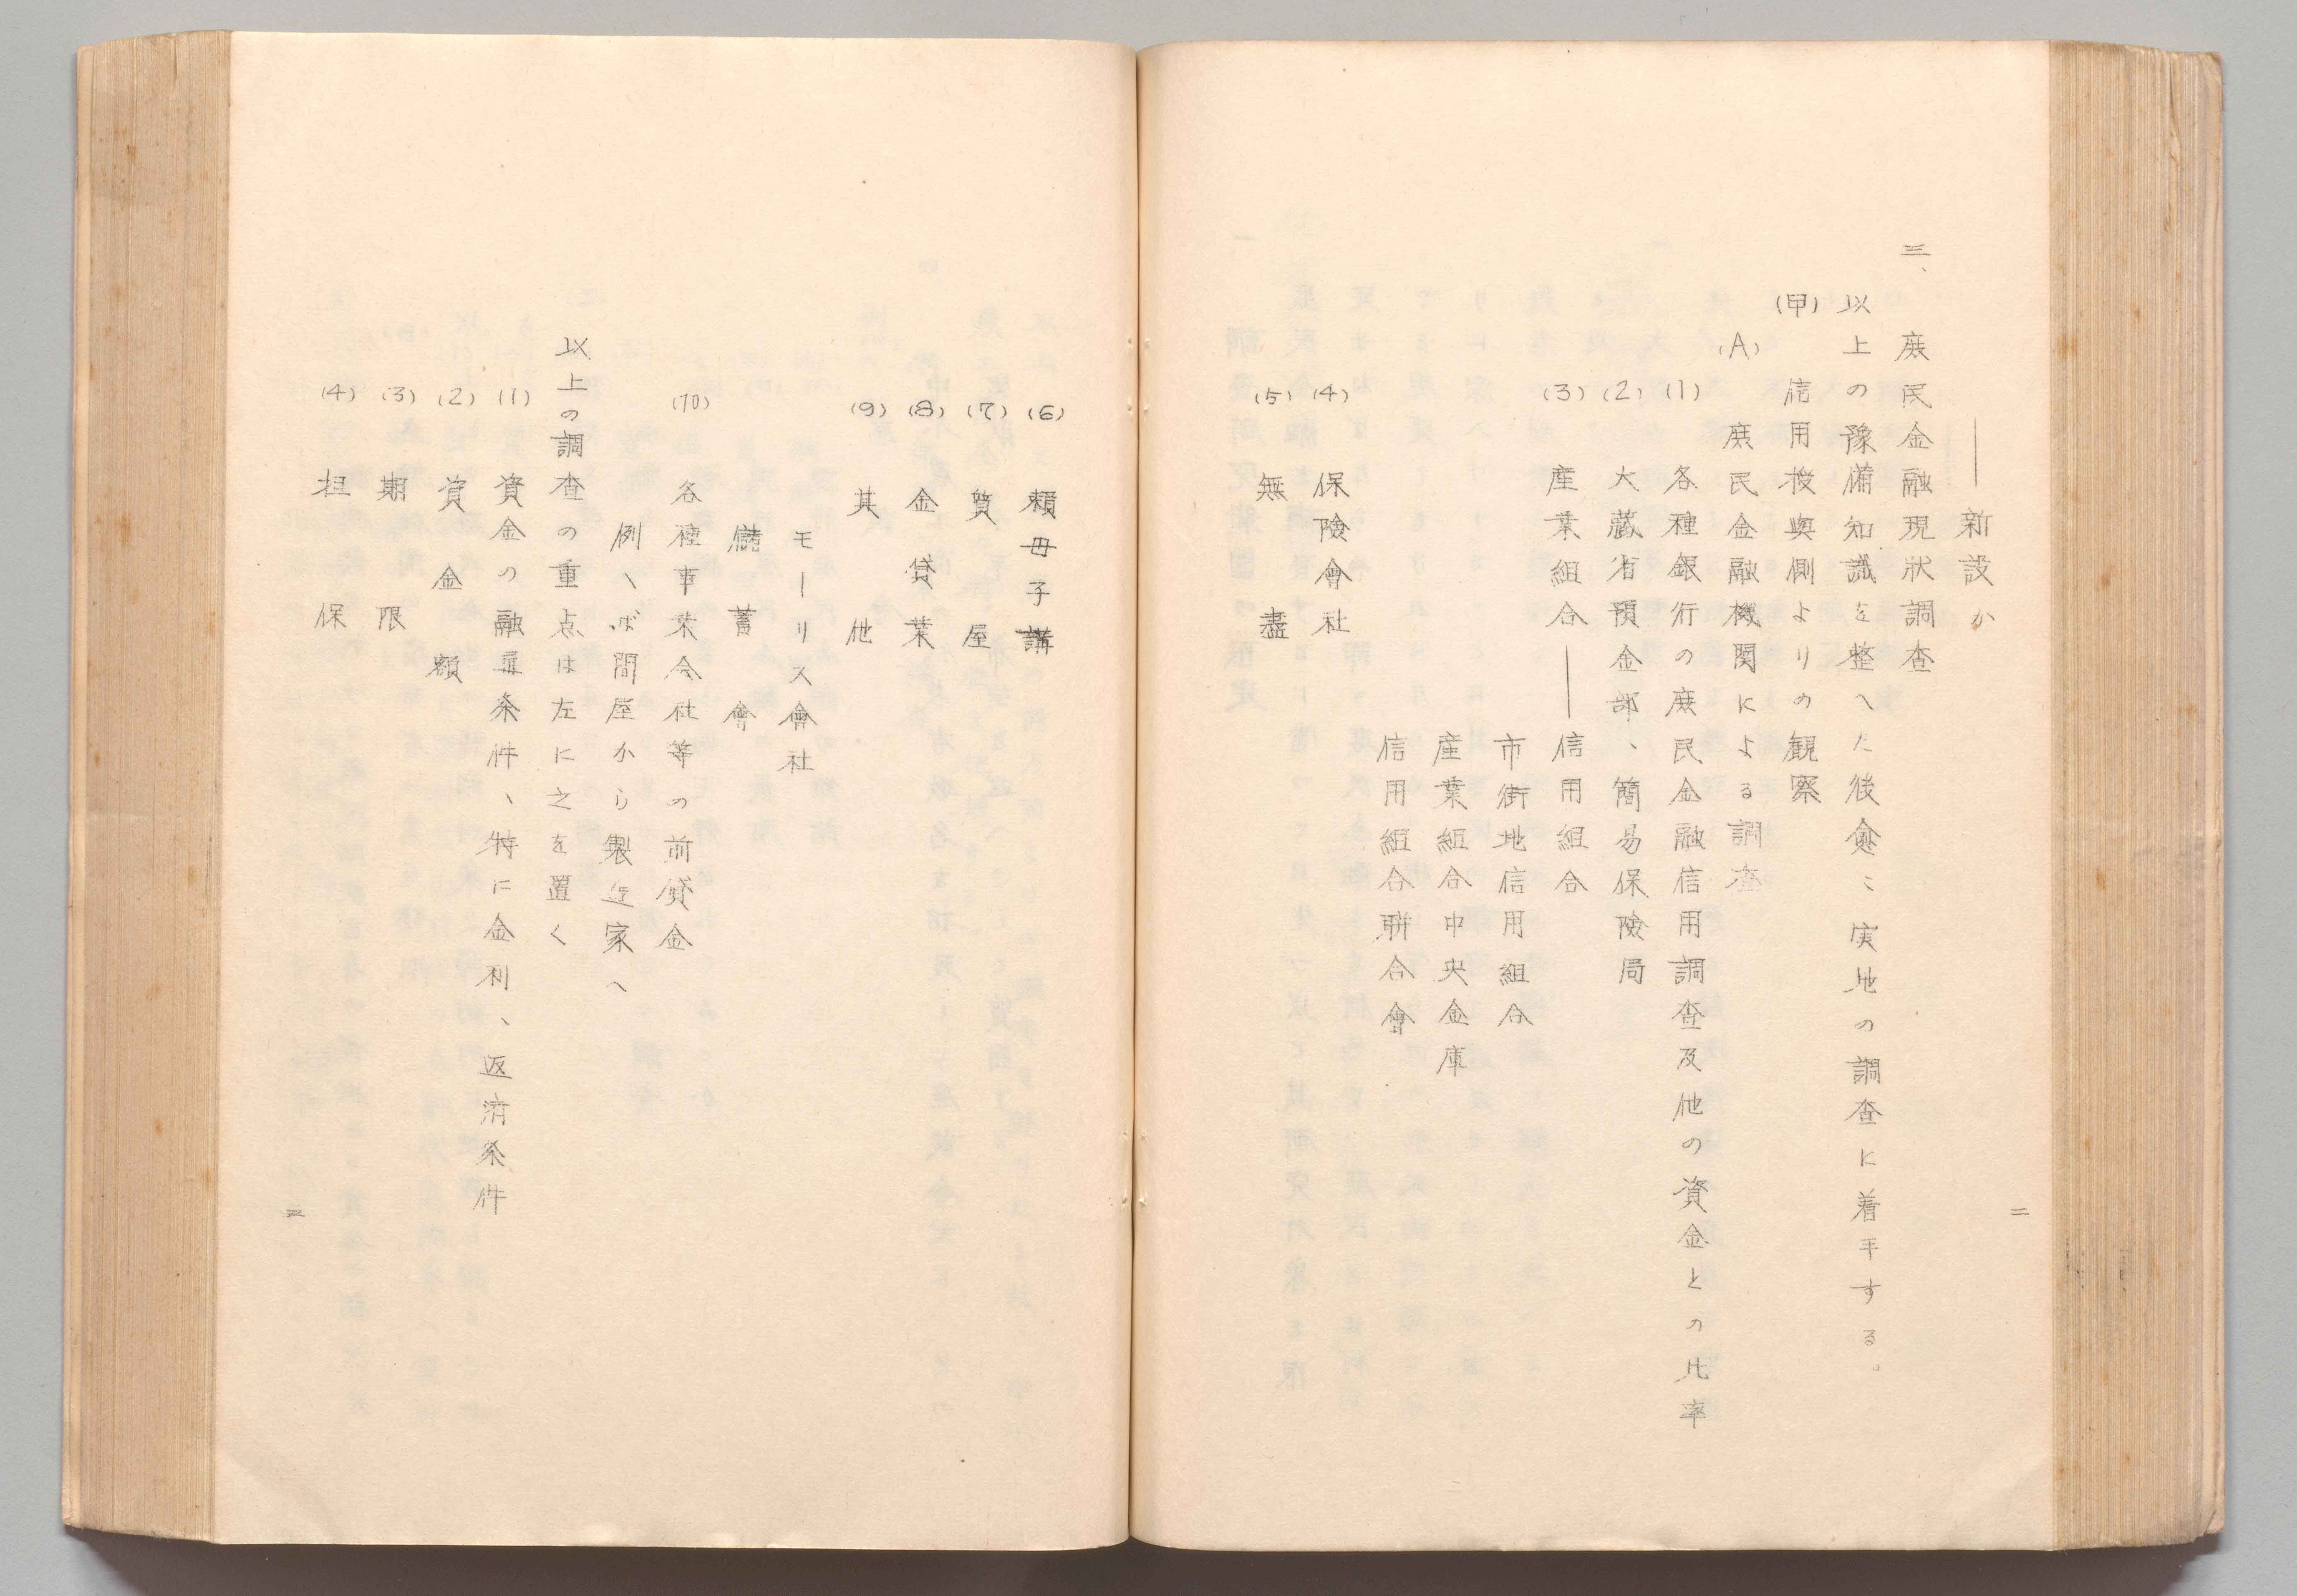 ——新設か
三、庶民金融現狀調査
以上の豫備知識を整へた後愈〻実地の調査に着手する。
(甲) 信用授與側よりの観察
(A) 庶民金融機関による調査
(1) 各種銀行の庶民金融信用調査及他の資金との比率
(2) 大蔵省預金部、簡易保險局
(3) 産業組合——信用組合
市街地信用組合
産業組合中央金庫
信用組合聯合會
(4) 保險會社
(5) 無盡
二
(6) 頼母子講
(7) 質屋
(8) 金貸業
(9) 其他
モーリス會社
儲蓄會
(10) 各種事業会社等の前貸金
例へば問屋から製造家へ
以上の調査の重点は左に之を置く
(1) 資金の融通条件、特に金利、返済条件
(2) 資金額
(3) 期限
(4) 担保
三